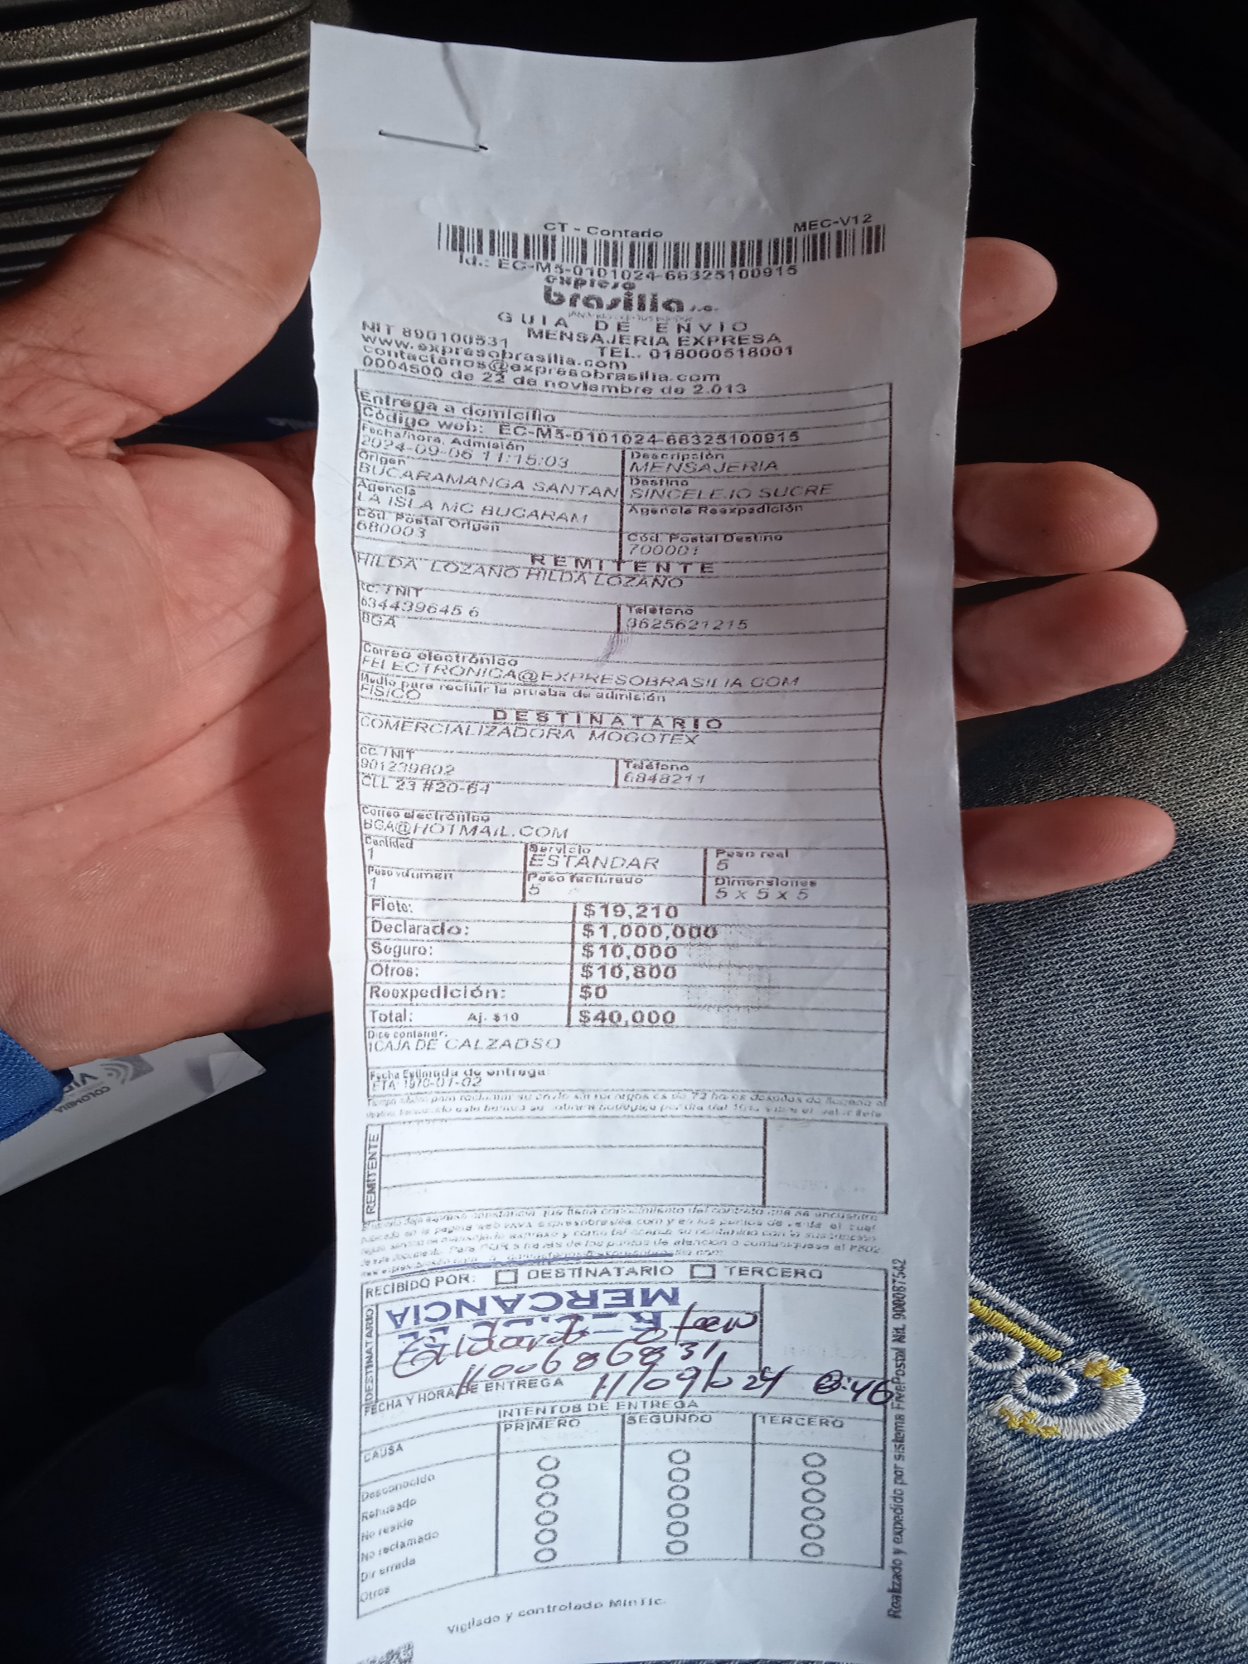 CT - Contado MEC-V12
Id.: EC-M5-0101024-66325100915
expreso
brasilia s.a.
GUIA DE ENVIO
NIT 890100531 MENSAJERIA EXPRESA
www.expresobrasilia.com TEL. 018000518001
contactanos@expresobrasilia.com
0004500 de 22 de noviembre de 2.013
Entrega a domicilio
Código web: EC-M5-0101024-66325100915
Fecha/hora. Admisión Descripción
2024-09-06 11:15:03 MENSAJERIA
Origen Destino
BUCARAMANGA SANTAN SINCELEJO SUCRE
Agencia Agencia Reexpedición
LA ISLA MC BUCARAM
Cód. Postal Origen Cód. Postal Destino
680003 700001
REMITENTE
HILDA LOZANO HILDA LOZANO
CC. / NIT Teléfono
634439645 6 3625621215
BGA
Correo electrónico
FELECTRONICA@EXPRESOBRASILIA.COM
Medio para recibir la prueba de admisión
FISICO
DESTINATARIO
COMERCIALIZADORA MOGOTEX
CC / NIT Teléfono
901239802 6848211
CLL 23 #20-64
Correo electrónico
BGA@HOTMAIL.COM
Cantidad Servicio Peso real
1 ESTANDAR 5
Peso volumen Peso facturado Dimensiones
1 5 5 x 5 x 5
Flete: $19,210
Declarado: $1,000,000
Seguro: $10,000
Otros: $10,800
Reexpedición: $0
Total: Aj. $10 $40,000
Dice contener:
1CAJA DE CALZADSO
Fecha Estimada de entrega:
ETA 1970-01-02
REMITENTE
RECIBIDO POR: DESTINATARIO TERCERO
MERCANCIA
DESTINATARIO
1100686831
FECHA Y HORA DE ENTREGA 11/09/2024 :46
INTENTOS DE ENTREGA
CAUSA PRIMERO SEGUNDO TERCERO
Desconocido
Rehusado
No reside
No reclamado
Dir errada
Otros
Vigilado y controlado MinTic.
Realizado y expedido por sistema FivePostal Nit. 900087542
COLOMBIA